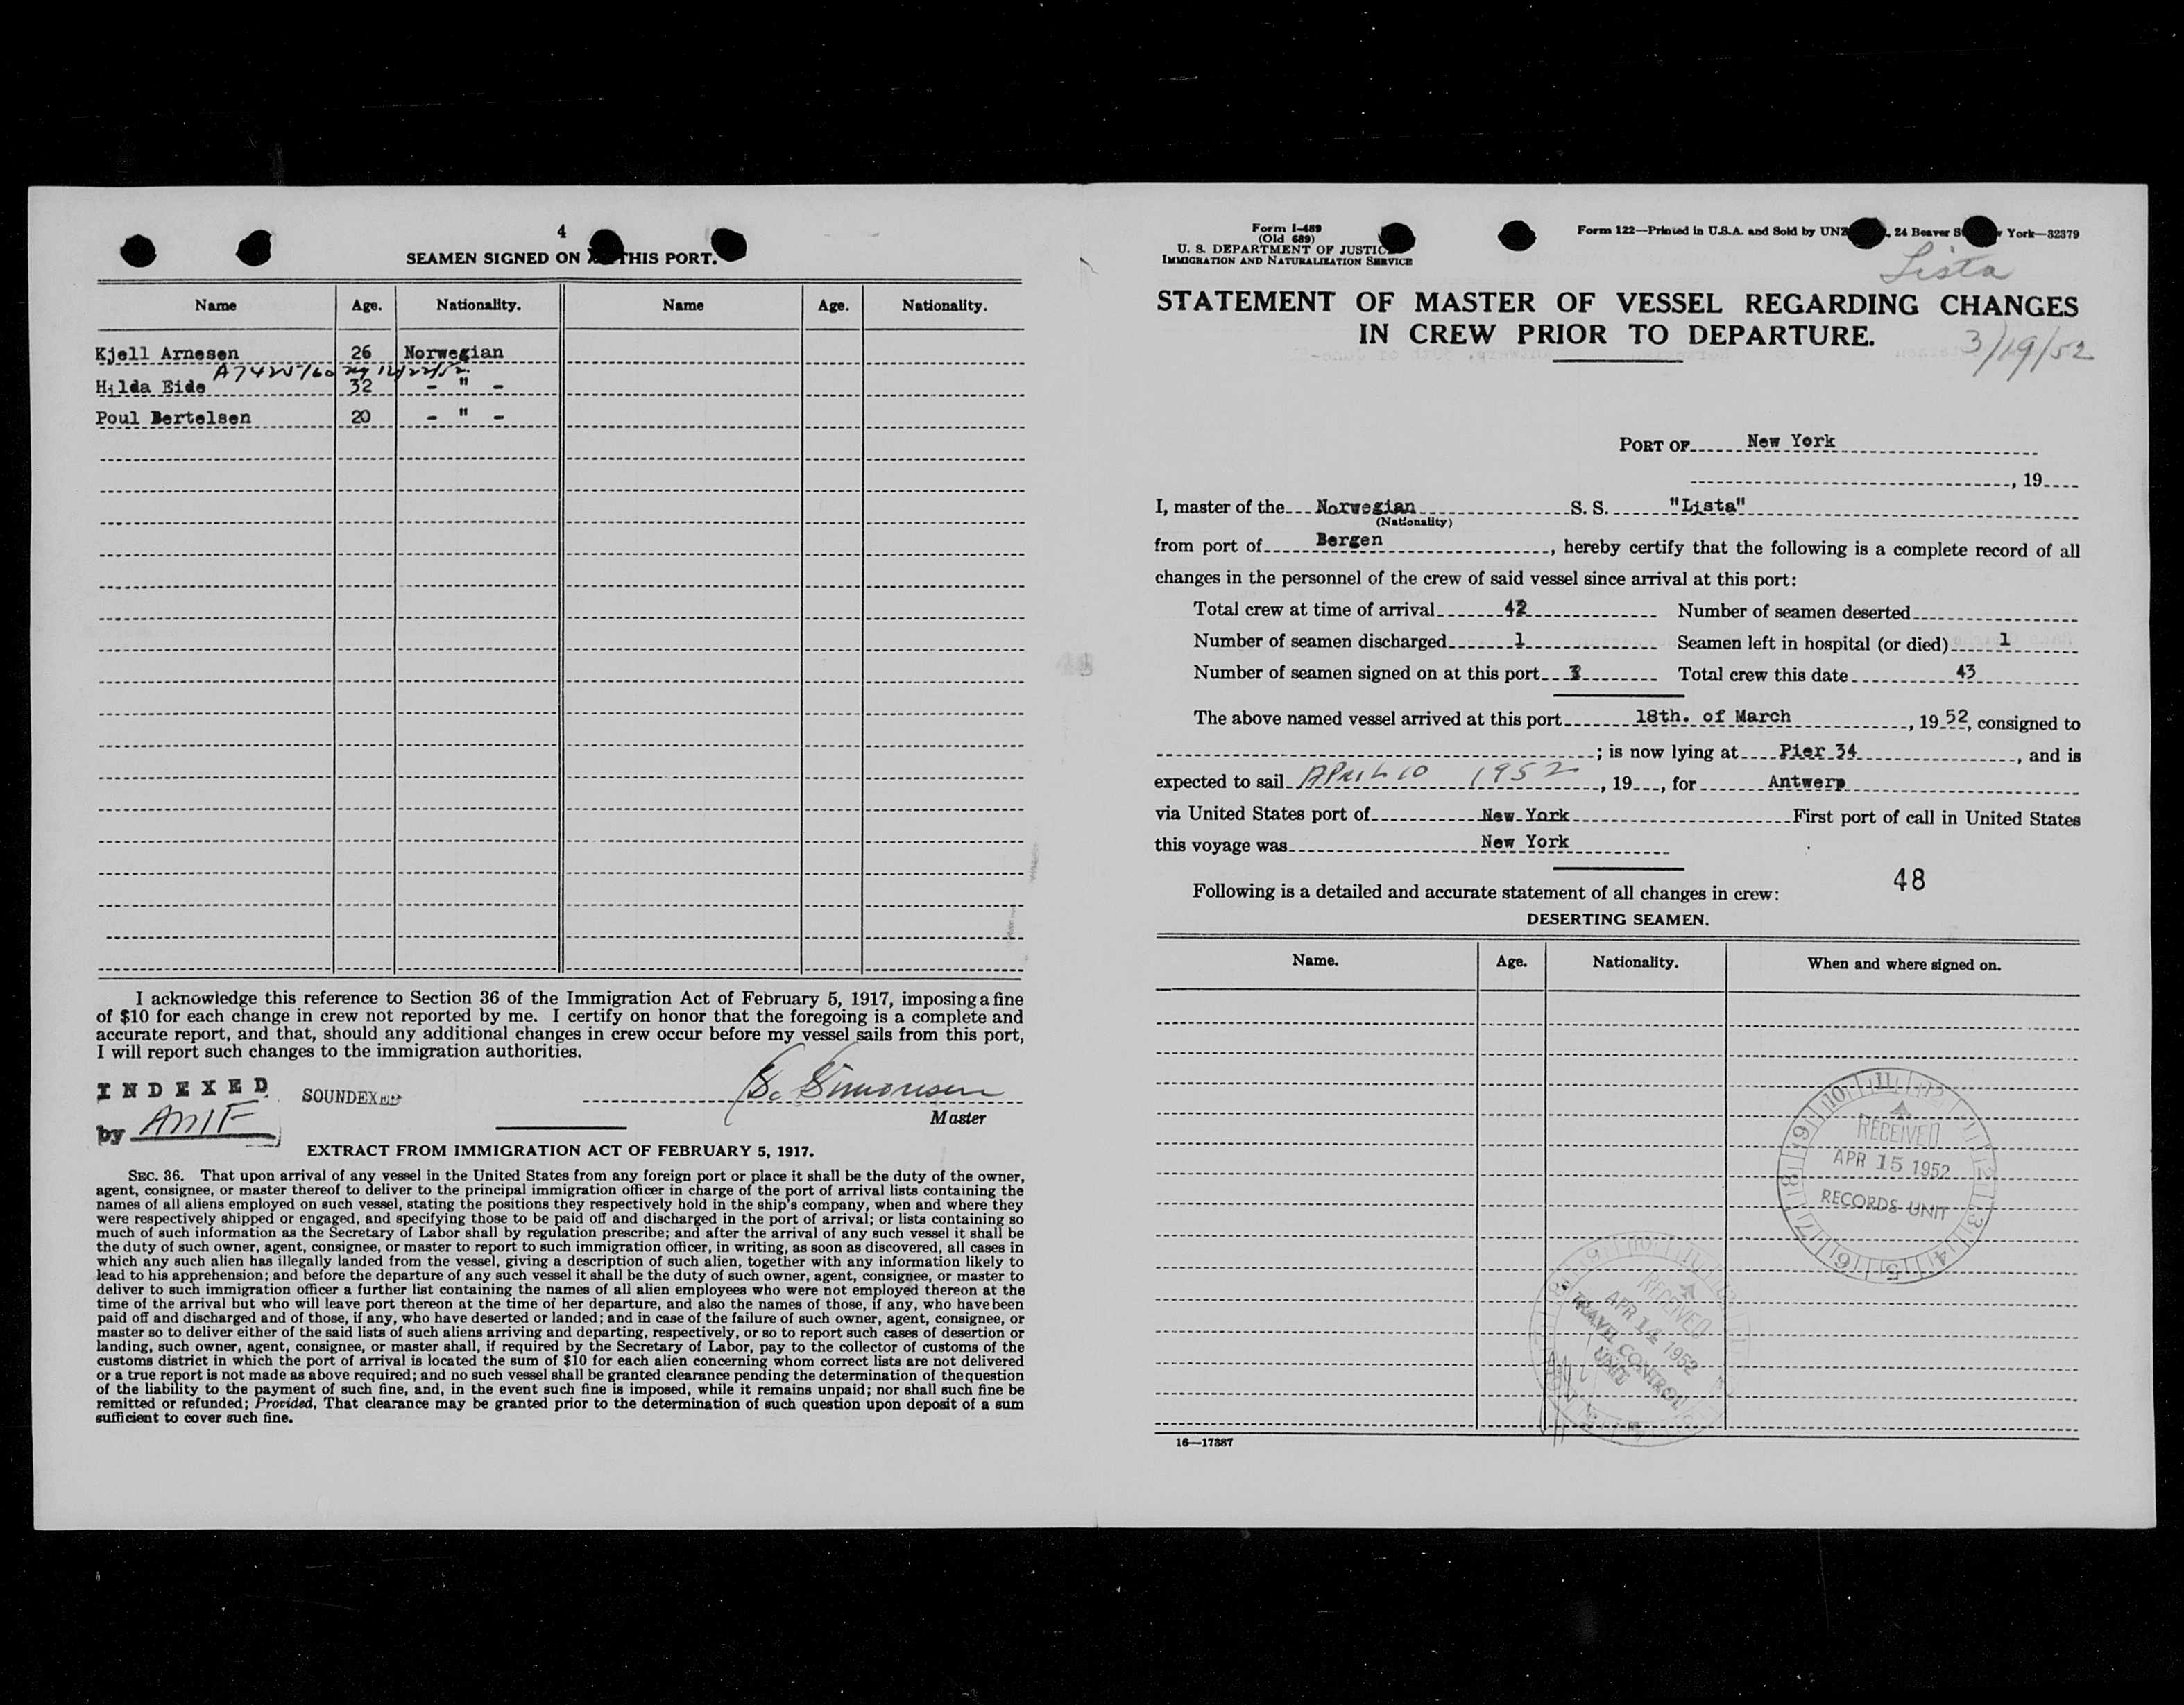 4
SEAMEN SIGNED ON THIS PORT.
Name Age. Nationality. Name Age. Nationality.
Kjell Arnesen 26 Norwegian
Hilda Eide 32 - " -
Poul Bertelsen 20 - " -
I acknowledge this reference to Section 36 of the Immigration Act of February 5, 1917, imposing a fine
of $10 for each change in crew not reported by me. I certify on honor that the foregoing is a complete and
accurate report, and that, should any additional changes in crew occur before my vessel sails from this port,
I will report such changes to the immigration authorities.
INDEXED SOUNDEXED
by
Simonsen
Master
EXTRACT FROM IMMIGRATION ACT OF FEBRUARY 5, 1917.
SEC. 36. That upon arrival of any vessel in the United States from any foreign port or place it shall be the duty of the owner,
agent, consignee, or master thereof to deliver to the principal immigration officer in charge of the port of arrival lists containing the
names of all aliens employed on such vessel, stating the positions they respectively hold in the ship's company, when and where they
were respectively shipped or engaged, and specifying those to be paid off and discharged in the port of arrival; or lists containing so
much of such information as the Secretary of Labor shall by regulation prescribe; and after the arrival of any such vessel it shall be
the duty of such owner, agent, consignee, or master to report to such immigration officer, in writing, as soon as discovered, all cases in
which any such alien has illegally landed from the vessel, giving a description of such alien, together with any information likely to
lead to his apprehension; and before the departure of any such vessel it shall be the duty of such owner, agent, consignee, or master to
deliver to such immigration officer a further list containing the names of all alien employees who were not employed thereon at the
time of the arrival but who will leave port thereon at the time of her departure, and also the names of those, if any, who have been
paid off and discharged and of those, if any, who have deserted or landed; and in case of the failure of such owner, agent, consignee, or
master so to deliver either of the said lists of such aliens arriving and departing, respectively, or so to report such cases of desertion or
landing, such owner, agent, consignee, or master shall, if required by the Secretary of Labor, pay to the collector of customs of the
customs district in which the port of arrival is located the sum of $10 for each alien concerning whom correct lists are not delivered
or a true report is not made as above required; and no such vessel shall be granted clearance pending the determination of the question
of the liability to the payment of such fine, and, in the event such fine is imposed, while it remains unpaid; nor shall such fine be
remitted or refunded; Provided, That clearance may be granted prior to the determination of such question upon deposit of a sum
sufficient to cover such fine.
Form I-489
(Old 689)
U. S. DEPARTMENT OF JUSTIC
IMMIGRATION AND NATURALIZATION SERVICE
Form 122—Printed in U.S.A. and Sold by UNZ , 24 Beaver S York—32379
Lista
STATEMENT OF MASTER OF VESSEL REGARDING CHANGES
IN CREW PRIOR TO DEPARTURE.
3/19/52
PORT OF New York
, 19
I, master of the Norwegian S. S. "Lista"
(Nationality)
from port of Bergen , hereby certify that the following is a complete record of all
changes in the personnel of the crew of said vessel since arrival at this port:
Total crew at time of arrival 42 Number of seamen deserted
Number of seamen discharged 1 Seamen left in hospital (or died) 1
Number of seamen signed on at this port Total crew this date 43
The above named vessel arrived at this port 18th. of March , 1952, consigned to
; is now lying at Pier 34 , and is
expected to sail APRIL 10 1952 , 19 , for Antwerp
via United States port of New York First port of call in United States
this voyage was New York
48
Following is a detailed and accurate statement of all changes in crew:
DESERTING SEAMEN.
Name. Age. Nationality. When and where signed on.
RECEIVED
APR 15 1952
RECORDS UNIT
RECEIVED
APR 14 1952
TRAVEL CONTROL
UNIT
16—17387